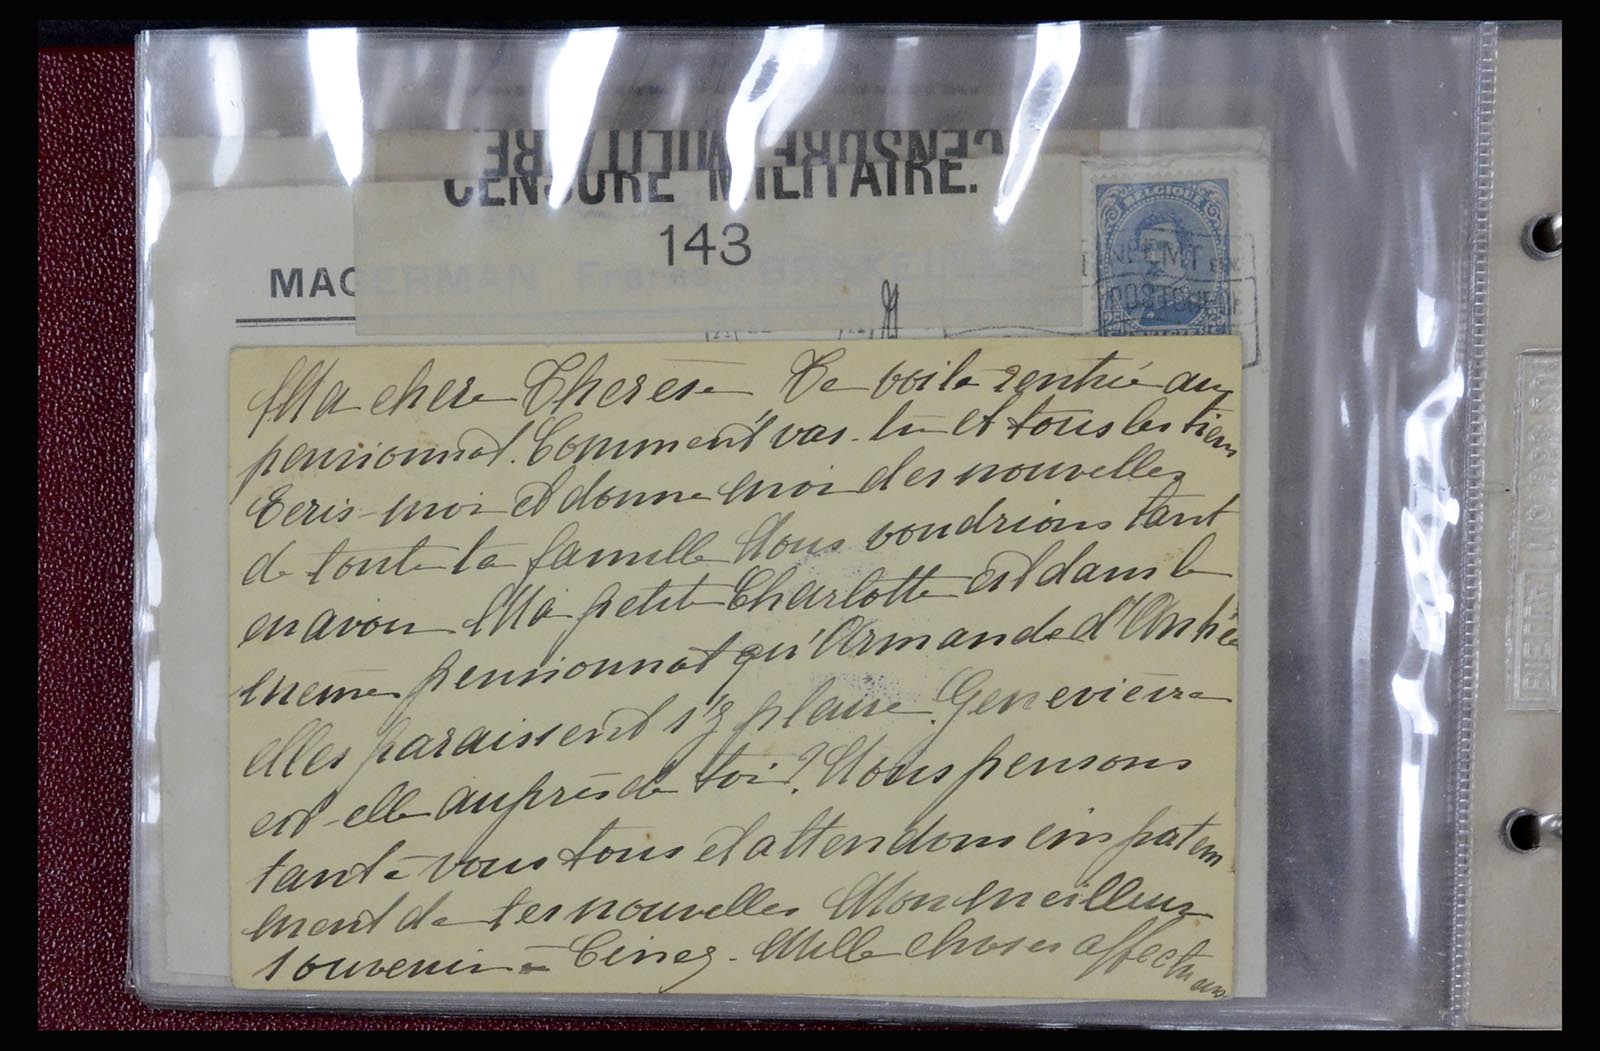 CENSURE MILITAIRE
CENSURE MILITAIRE.
143
MACKERMAN Frères, BRUXELLES
BELGIQUE
NEEMT EEN
POSTCHECK
Ma chere Therese Te voila rentrée au
pensionnat. Comment vas-tu et tous les tiens
Ecris-moi et donne moi des nouvelles
de toute la famille Nous voudrions tant
en avoir Ma petite Charlotte est dans le
meme pensionnat qu'Armande d'Anhée
elles paraissent s'y plaire. Genevieve
est-elle auprès de toi? Nous pensons
tant à vous tous et attendons impatem
ment de tes nouvelles Mon meilleur
souvenir - Mille choses affectueuses